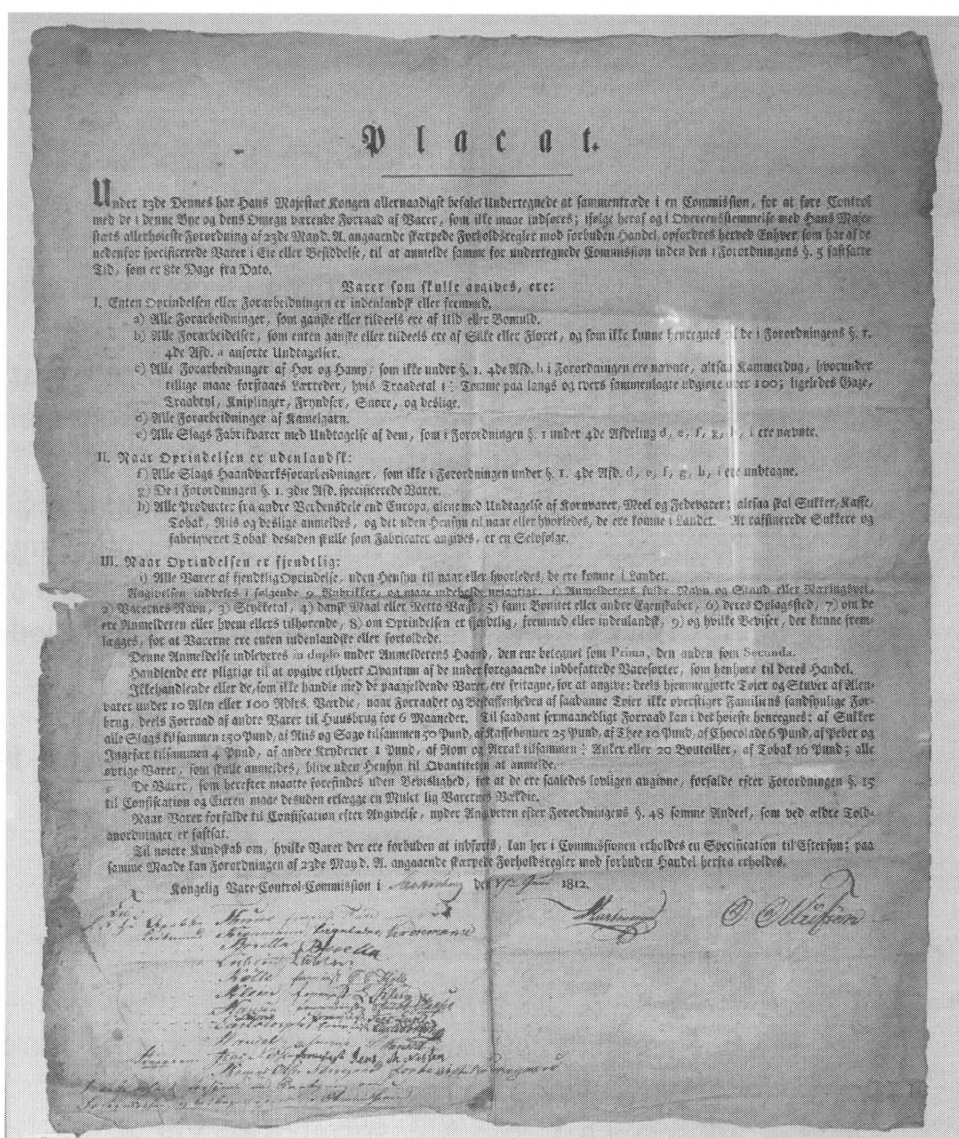 Placat.
Under 13de Dennes har Hans Majestæt Kongen allernaadigst befalet Undertegnede at sammentræde i en Commission, for at føre Control
med de i denne Bye og dens Omegn værende Forraad af Varer, som ikke maae indføres; ifølge heraf og i Overeensstemmelse med Hans Maje-
stæts allerhøieste Forordning af 23de May d. A. angaaende skærpede Forholdsregler mod forbuden Handel, opfordres herved Enhver, som har af de
nedenfor specificerede Varer i Eie eller Besiddelse, til at anmelde samme for undertegnede Commission inden den i Forordningens §. 5 fastsatte
Tid, som er 8te Dage fra Dato.
Varer som skulle angives, ere:
I. Enten Oprindelsen eller Forarbeidningen er indenlandsk eller fremmed.
a) Alle Forarbeidninger, som ganske eller tildeels ere af Uld eller Bomuld.
b) Alle Forarbeidelser, som enten ganske eller tildeels ere af Silke eller Floret, og som ikke kunne henregnes til de i Forordningens §. 1.
4de Afd. a anførte Undtagelser.
c) Alle Forarbeidninger af Hør og Hamp, som ikke under §. 1. 4de Afd. b i Forordningen ere nævnte, altsaa Kammerdug, hvorunder
tillige maae forstaaes Lærreder, hvis Traadetal i Tomme paa langs og tvers sammenlagte udgiøre over 100; ligeledes Gaze,
Traadtyl, Kniplinger, Fryndser, Snore, og deslige.
d) Alle Forarbeidninger af Kamelgarn.
e) Alle Slags Fabrikvarer med Undtagelse af dem, som i Forordningen §. 1 under 4de Afdeling d, e, f, g, h, i ere nævnte.
II. Naar Oprindelsen er udenlandsk:
f) Alle Slags Haandværksforarbeidninger, som ikke i Forordningen under §. 1. 4de Afd. d, e, f, g, h, i ere undtagne.
g) De i Forordningen §. 1. 3die Afd. specificerede Varer.
h) Alle Producter fra andre Verdensdele end Europa, alene med Undtagelse af Kornvarer, Meel og Fedevarer; altsaa skal Sukker, Kaffe,
Tobak, Riis og deslige anmeldes, og det uden Hensyn til naar eller hvorledes, de ere komne i Landet. At raffinerede Sukkere og
fabriqveret Tobak desuden skulle som Fabricater angives, er en Selvfølge.
III. Naar Oprindelsen er fjendtlig:
i) Alle Varer af fjendtlig Oprindelse, uden Hensyn til naar eller hvorledes, de ere komne i Landet.
Angivelsen inddeles i følgende 9 Rubrikker, og maae indeholde nøiagtigt. 1) Anmelderens fulde Navn og Stand eller Næringsvei,
2) Varernes Navn, 3) Stykketal, 4) dansk Maal eller Netto Vægt, 5) samt Bonitet eller andre Egenskaber, 6) deres Oplagssted, 7) om de
ere Anmelderen eller hvem ellers tilhørende, 8) om Oprindelsen er fjendtlig, fremmed eller indenlandsk, 9) og hvilke Beviser, der kunne frem-
lægges, for at Varerne ere enten indenlandske eller fortoldede.
Denne Anmeldelse indleveres in duplo under Anmelderens Haand, den ene betegnet som Prima, den anden som Secunda.
Handlende ere pligtige til at opgive ethvert Qvantum af de under foregaaende indbefattede Varesorter, som henhøre til deres Handel.
Ikkehandlende eller de, som ikke handle med de paagjeldende Varer, ere fritagne, for at angive: deels hjemmegjorte Tøier og Stuver af Alen-
varer under 10 Alen eller 100 Rdlrs. Værdie, naar Forraadet og Beskaffenheden af saadanne Tøier ikke overstiger Familiens sandsynlige For-
brug, deels Forraad af andre Varer til Huusbrug for 6 Maaneder. Til saadant sexmaanedligt Forraad kan i det høieste henregnes: af Sukker
alle Slags tilsammen 150 Pund, af Riis og Sago tilsammen 50 Pund, af Kaffebønner 25 Pund, af Thee 10 Pund, af Chocolade 6 Pund, af Peber og
Ingefær tilsammen 4 Pund, af andre Kryderier 1 Pund, af Rom og Arrak tilsammen Anker eller 20 Bouteiller, af Tobak 16 Pund; alle
øvrige Varer, som skulle anmeldes, blive uden Hensyn til Qvantiteten at anmelde.
De Varer, som herefter maatte forefindes uden Beviislighed, for at de ere saaledes lovligen angivne, forfalde efter Forordningen §. 15
til Confiscation og Eieren maae desuden erlægge en Mulct lig Varernes Værdie.
Naar Varer forfalde til Confiscation efter Angivelse, nyder Angiveren efter Forordningens §. 48 samme Andeel, som ved ældre Told-
anordninger er fastsat.
Til nøiere Kundskab om, hvilke Varer der ere forbuden at indføris, kan her i Commissionen erholdes en Specification til Eftersyn; paa
samme Maade kan Forordningen af 23de May d. A. angaaende skærpede Forholdsregler mod forbuden Handel herfra erholdes.
Kongelig Vare-Control-Commission i den Juni 1812.
Hartmann